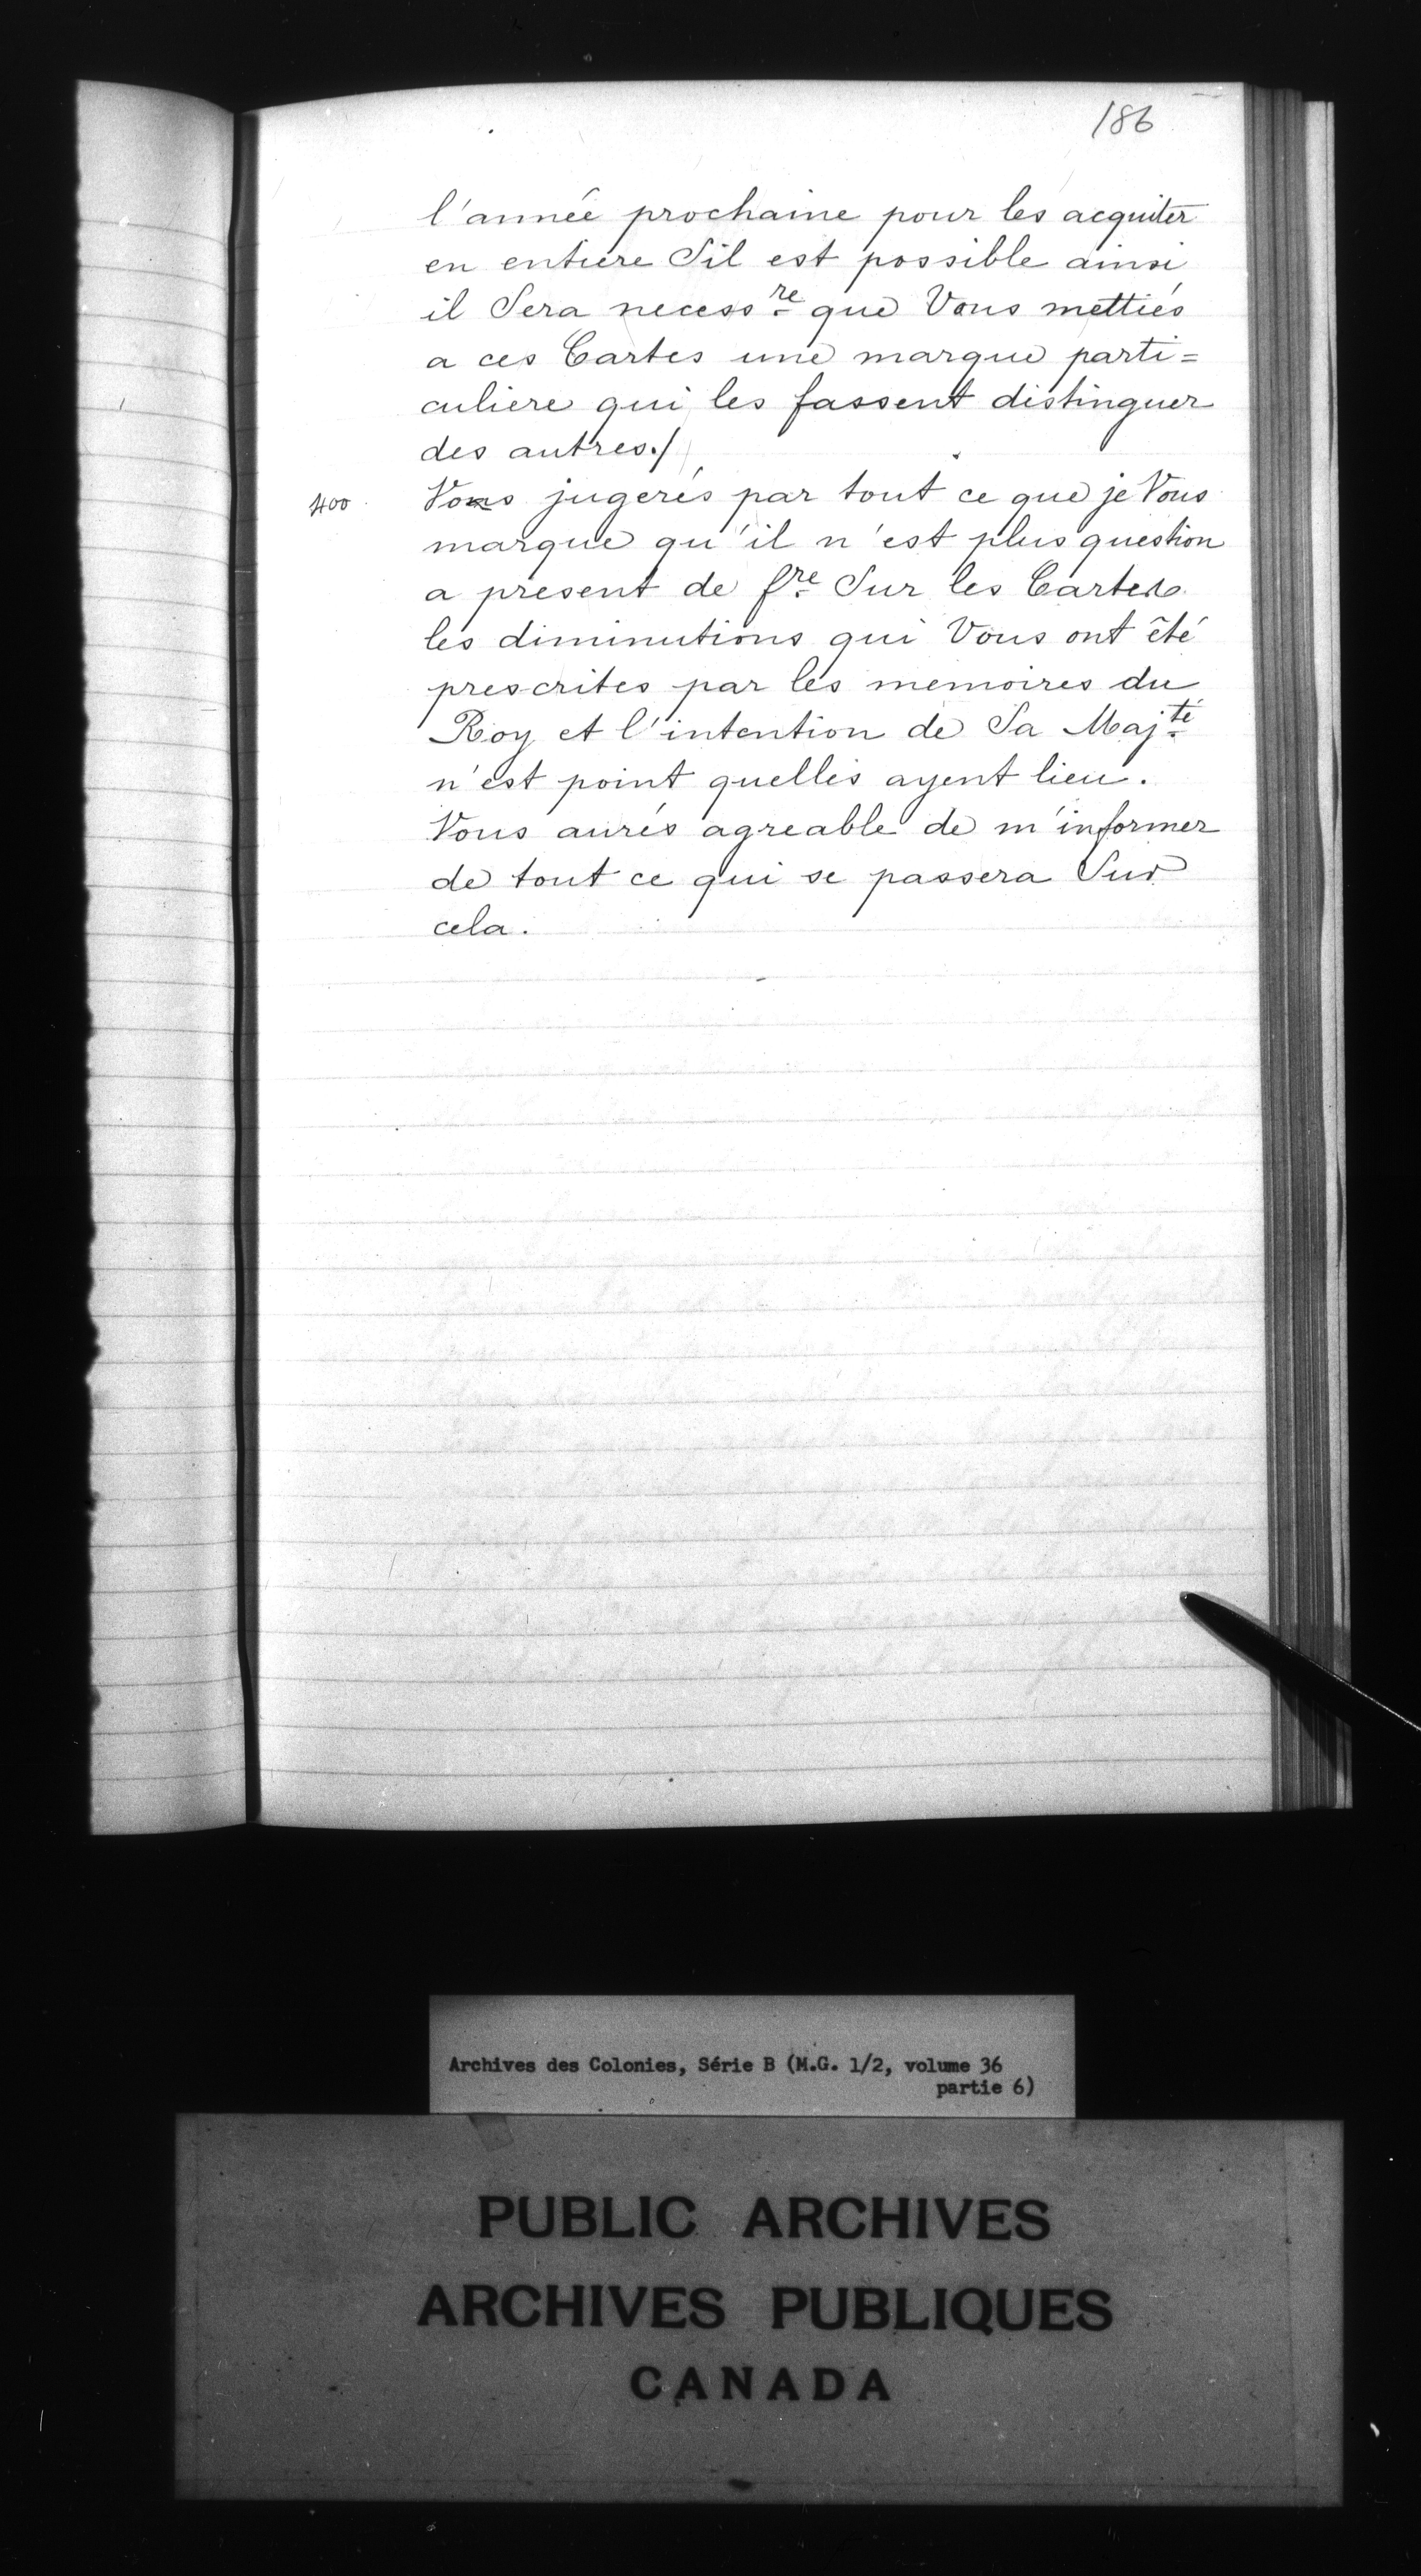 186
l'année prochaine pour les acquiter
en entiere S'il est possible ainsi
il Sera necess.re que Vous mettiés
a ces Cartes une marque parti=
culiere qui les fassent distinguer
des autres./
400
Vous jugerés par tout ce que je Vous
marque qu'il n'est plus question
a present de f.re Sur les Cartes
les diminutions qui Vous ont êté
prescrites par les memoires du
Roy et l'intention de Sa Maj.té
n'est point quelles ayent lieu.
Vous aurés agreable de m'informer
de tout ce qui se passera Sur
cela.
Archives des Colonies, Série B (M.G. 1/2, volume 36
partie 6)
PUBLIC ARCHIVES
ARCHIVES PUBLIQUES
CANADA